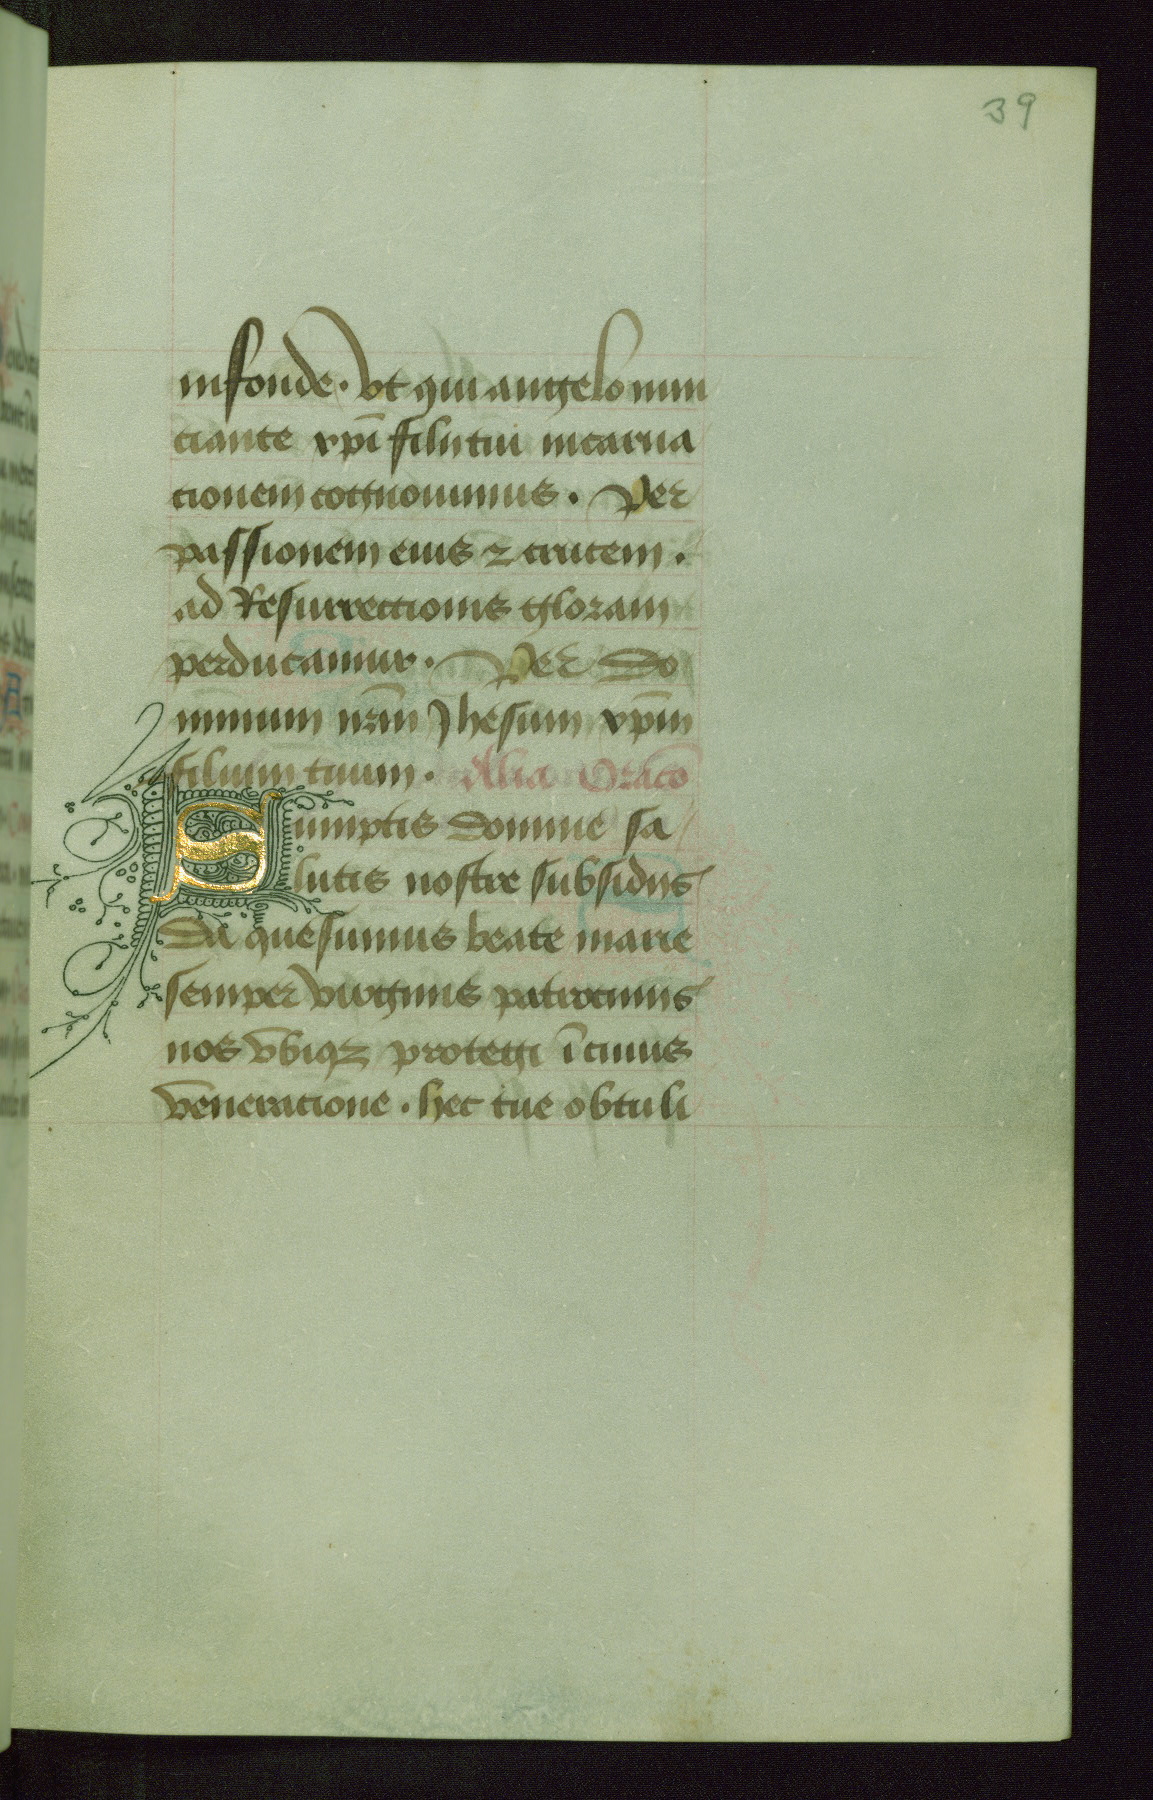 39
infonde. vt qui angelo nun
ciante xpī filii tui incarna
cionem cognouimus. Per
passionem eius ⁊ crucem.
ad Resurrectionis gloram
perducamur. Per Do
minum nr̄m Jhesum xpm̄
filium tuum. Alia Oracō
Sumptis domine sa
lutis nostre subsidiis
Da quesumus beate marie
semper virginis patrociniis
nos vbiqꝫ protegi ī cuius
veneracione. hec tue obtuli